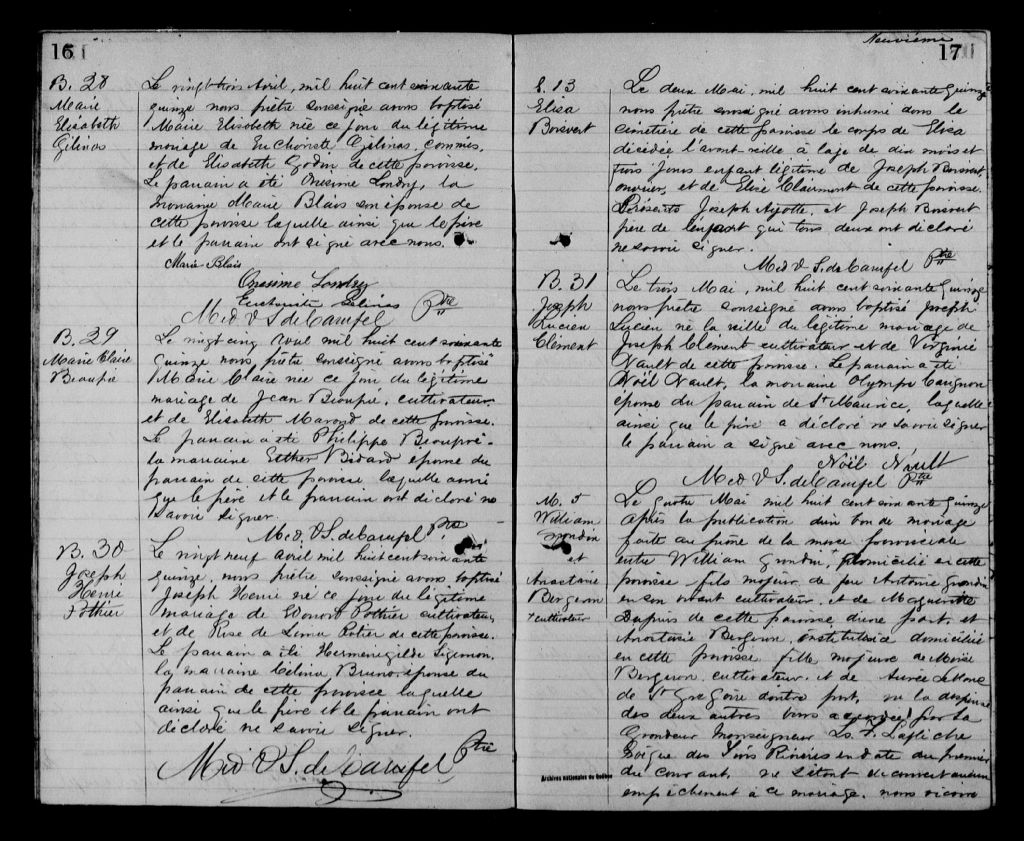 16
B. 28
Marie
Elisabeth
Gélinas
Le vingt trois Avril, mil huit cent soixante
quinze nous prêtre soussigné avons baptisé
Marie Elisabeth née ce jour du légitime
mariage de Euchariste Gélinas, commis,
et de Elisabeth Godin de cette paroisse.
Le parrain a été Onésime Landry, la
marraine Marie Blais son épouse de
cette paroisse laquelle ainsi que le père
et le parrain ont signé avec nous.
Marie Blais
Onésime Landry
Euchariste Gélinas
Med V S. de Carufel Ptre
B. 29
Marie Claire
Beaupré
Le vingt cinq Avril mil huit cent soixante
quinze nous prêtre soussigné avons baptisé
Marie Claire née ce jour du légitime
mariage de Jean Beaupré, cultivateur
et de Elisabeth de cette paroisse.
Le parrain a été Philippe Beaupré
la marraine Esther Bédard épouse du
parrain de cette paroisse laquelle ainsi
que le père et le parrain ont déclaré ne
savoir signer.
Med. V S. de Carufel Ptre
B. 30
Joseph
Henri
Pothier
Le vingt neuf avril mil huit cent soixante
quinze, nous prêtre soussigné avons baptisé
Joseph Henri né ce jour du légitime
mariage de Pothier cultivateur,
et de Rose de Lima de cette paroisse.
Le parrain a été Herménégilde
la marraine Célina Bruno épouse du
parrain de cette paroisse laquelle
ainsi que le père et le parrain ont
déclaré ne savoir signer.
Med V S. de Carufel Ptre
Neuvième
17
S. 13
Elisa
Boisvert
Le deux Mai, mil huit cent soixante quinze
nous prêtre soussigné avons inhumé dans le
cimetière de cette paroisse le corps de Elisa
décédée l'avant-veille à l'age de dix mois et
trois jours enfant légitime de Joseph Boisvert
ouvrier, et de Elise Clairmont de cette paroisse.
Présents Joseph Ayotte, et Joseph Boisvert
père de l'enfant qui tous deux ont déclaré
ne savoir signer.
Med V S. de Carufel Ptre
B. 31
Joseph
Lucien
Clément
Le trois Mai, mil huit cent soixante quinze
nous prêtre soussigné avons baptisé Joseph
Lucien né la veille du légitime mariage de
Joseph Clément cultivateur et de Virginie
Nault de cette paroisse. Le parrain a été
Noël Nault, la marraine Olympe
épouse du parrain de St Maurice, laquelle
ainsi que le père a déclaré ne savoir signer
le parrain a signé avec nous.
Noël Nault
Med V S. de Carufel Ptre
M. 5
William
Grondin
et
Anastasie
Bergeron
+ cultivateur
Le quatre Mai mil huit cent soixante quinze
après la publication d'un ban de mariage
faite au prône de la messe paroissiale
entre William Grondin + domicilié en cette
paroisse fils majeur de feu Antoine Grondin
en son vivant cultivateur, et de Marguerite
Dupuis de cette paroisse d'une part, et
Anastasie Bergeron, institutrice domiciliée
en cette paroisse fille majeure de Moïse
Bergeron, cultivateur, et de
de St Grégoire d'autre part, vu la dispense
des deux autres bans accordée par Sa
Grandeur Monseigneur Ls. F. Laflèche
Evêque des Trois Rivières en date du premier
du courant, ne s'étant découvert aucun
empêchement à ce mariage, nous vicaire
Archives nationales du Québec